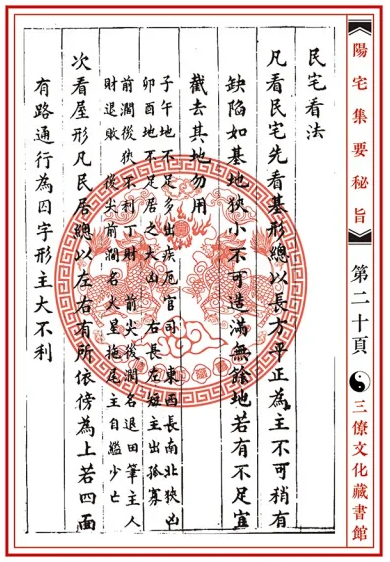 陽宅集要秘旨
第二十頁
三僚文化藏書館
民宅看法
凡看民宅先看基形總以長方平正為主不可稍有
缺陷如基地狹小不可造滿無餘地若有不足宜
截去其地勿用
子午地不足多出疾厄官司 東西長南北狹凶
卯酉地不足居之大凶 右長左短主出孤寡
前濶後狹不利丁財 前尖後濶名退田筆主人
財退敗 後尖前濶名火星拖尾主自縊少亡
次看屋形凡民居總以左右有所依傍為上若四面
有路通行為囚字形主大不利